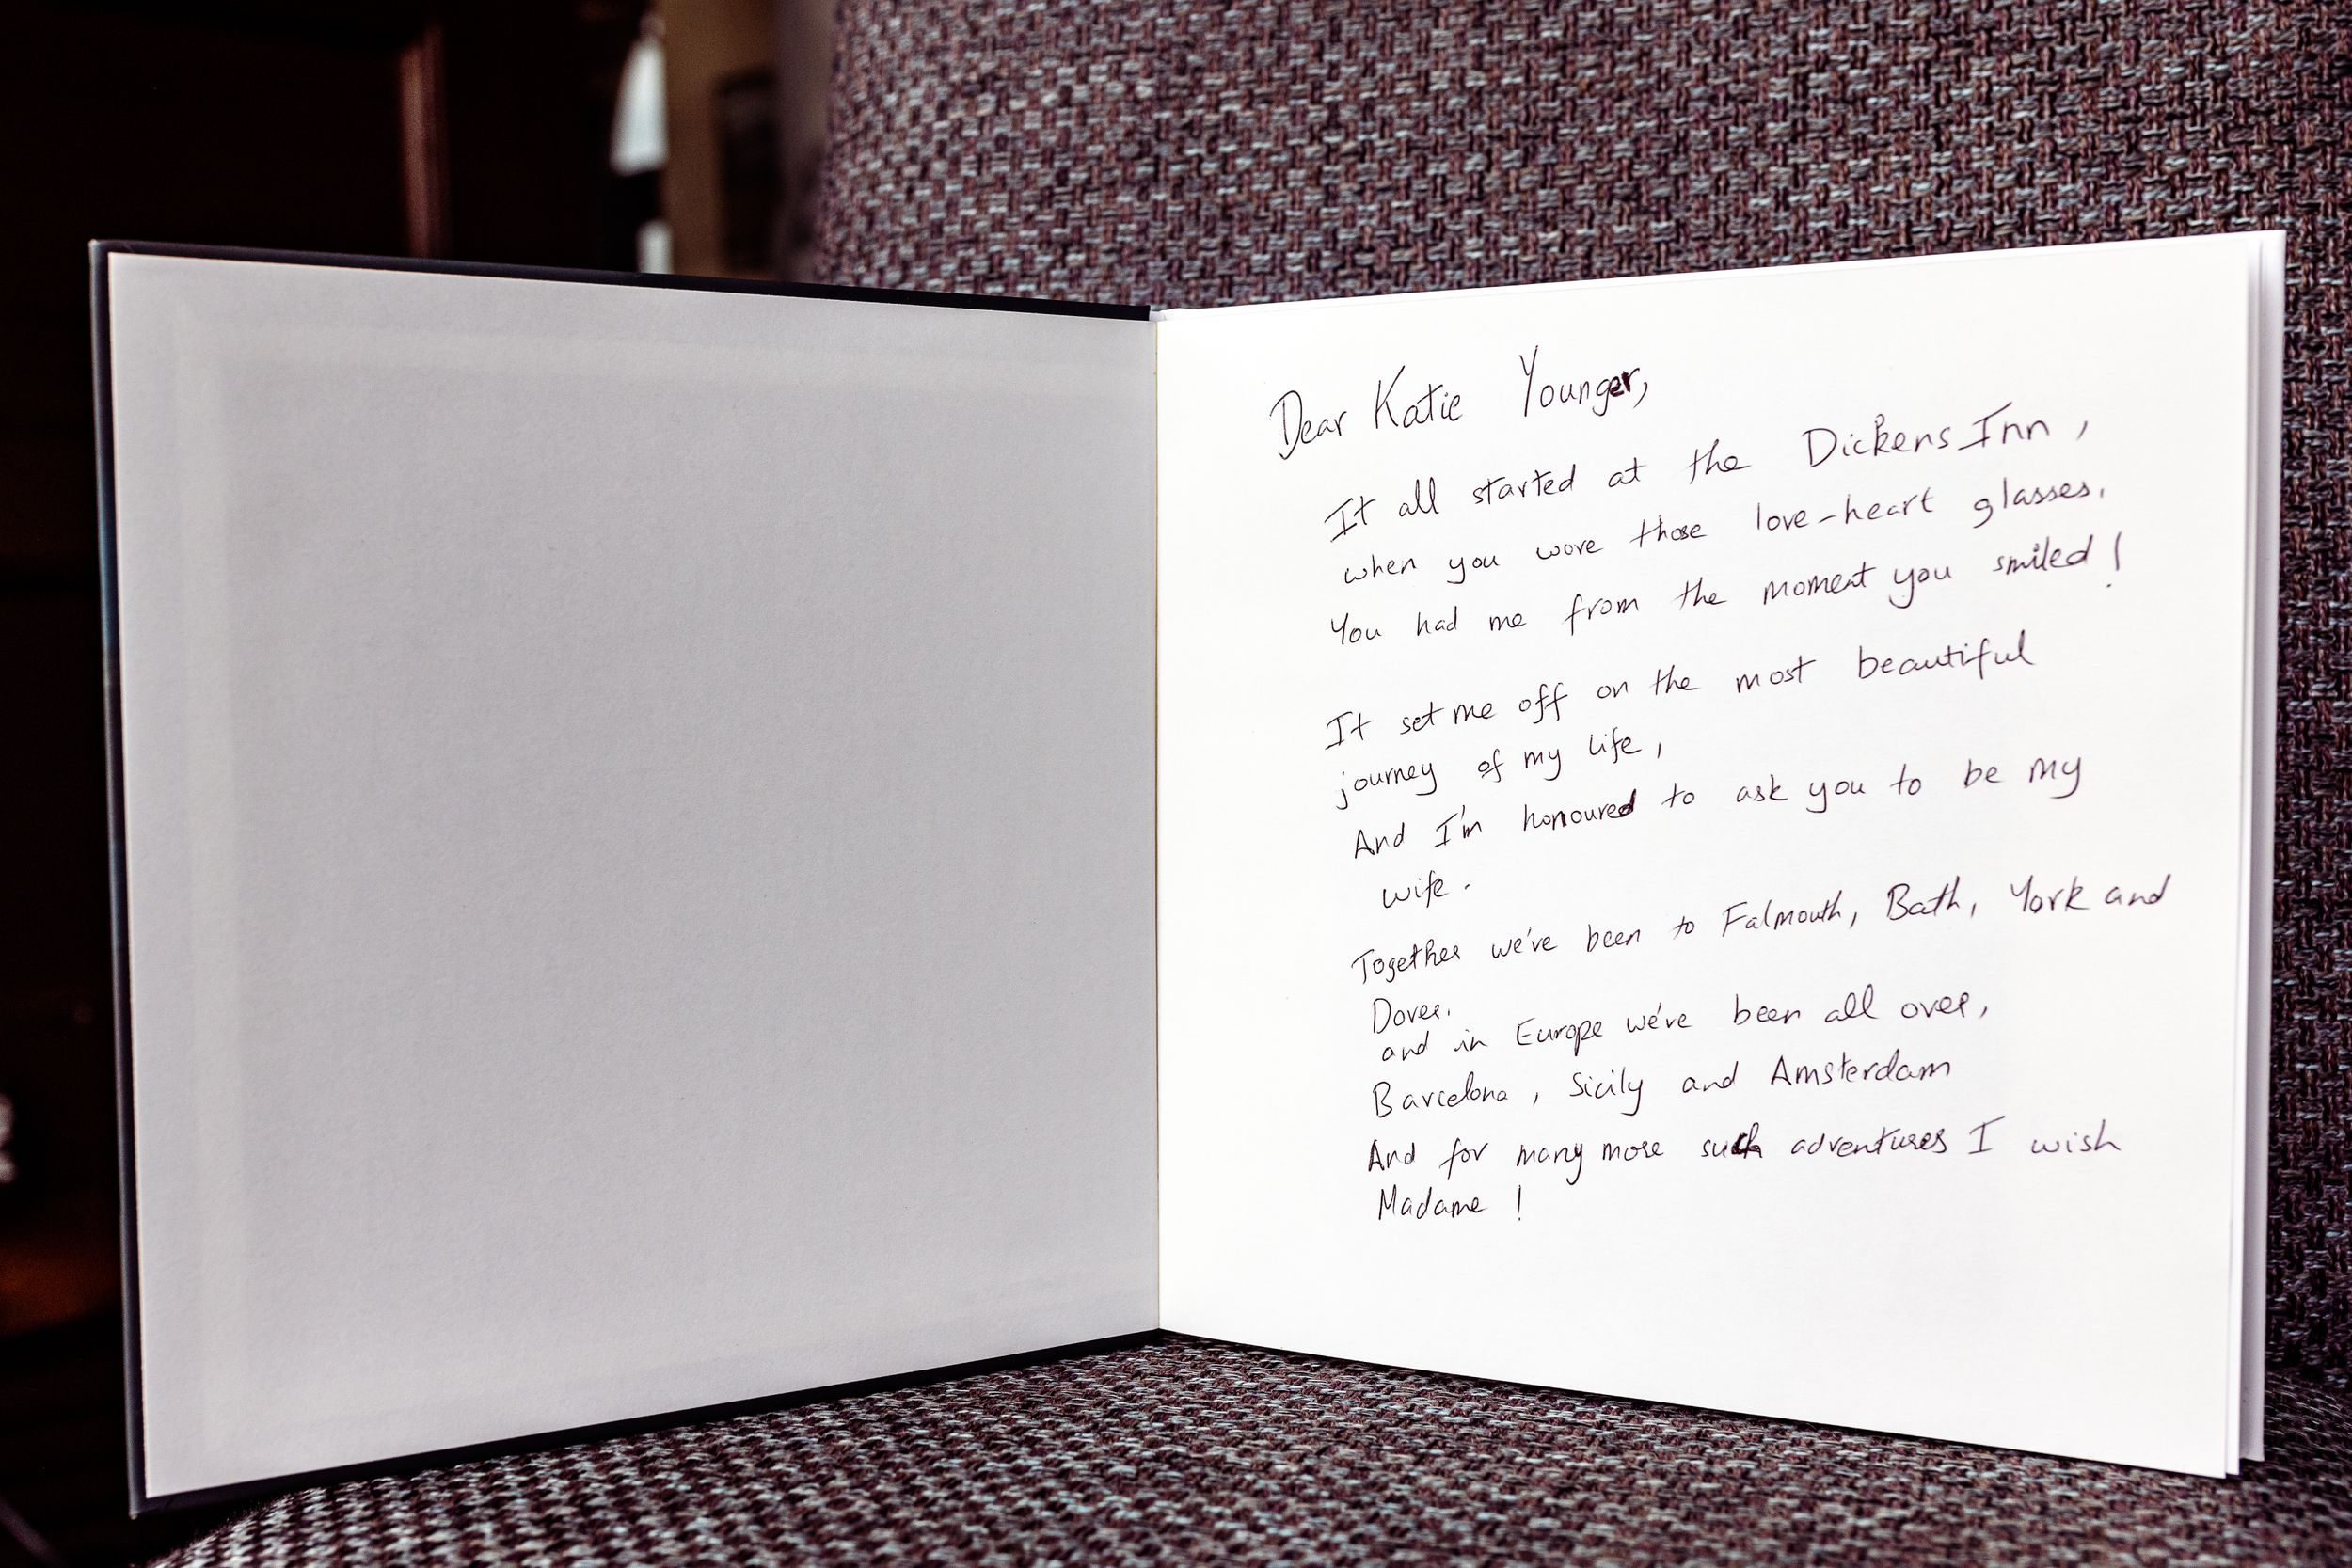 Dear Katie Younger,
It all started at the Dickens Inn,
when you wore those love-heart glasses,
You had me from the moment you smiled!
It set me off on the most beautiful
journey of my life,
And I'm honoured to ask you to be my
wife.
Together we've been to Falmouth, Bath, York and
Dover.
and in Europe we've been all over,
Barcelona, Sicily and Amsterdam
And for many more such adventures I wish
Madame!